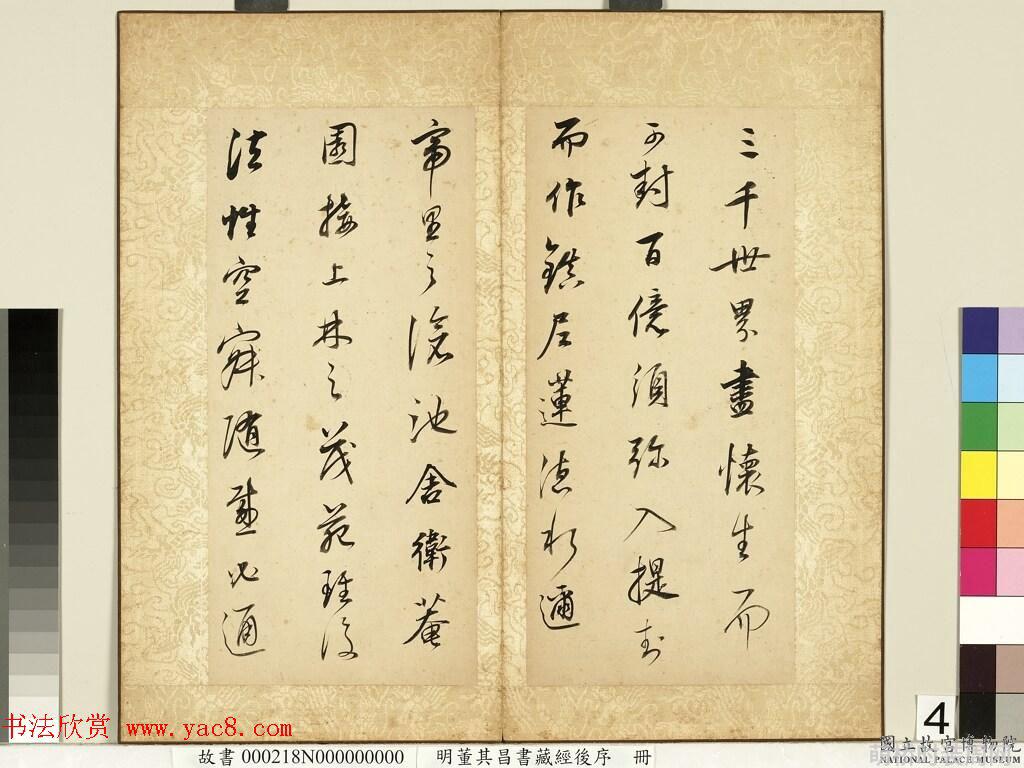 三千世界盡懷生而
可封百億須弥入提封
而作鎮尼蓮德水邇
帝里之滄池舍衛菴
園接上林之茂苑雖復
法性空寂隨感必通
书法欣赏 www.yac8.com
故書 000218N000000000 明董其昌書藏經後序 冊
4
國立故宮博物院
NATIONAL PALACE MUSEUM